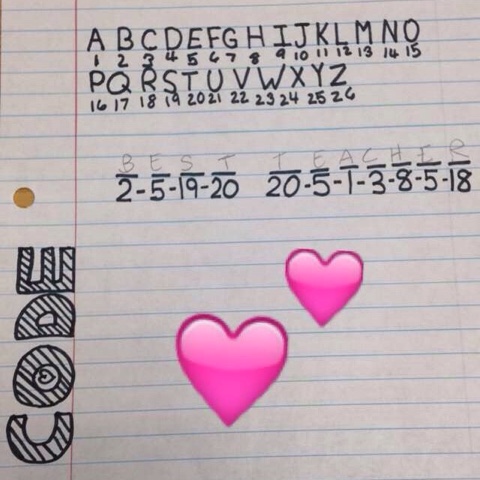 A B C D E F G H I J K L M N O
1 2 3 4 5 6 7 8 9 10 11 12 13 14 15
P Q R S T U V W X Y Z
16 17 18 19 20 21 22 23 24 25 26
B E S T T E A C H E R
2-5-19-20 20-5-1-3-8-5-18
CODE